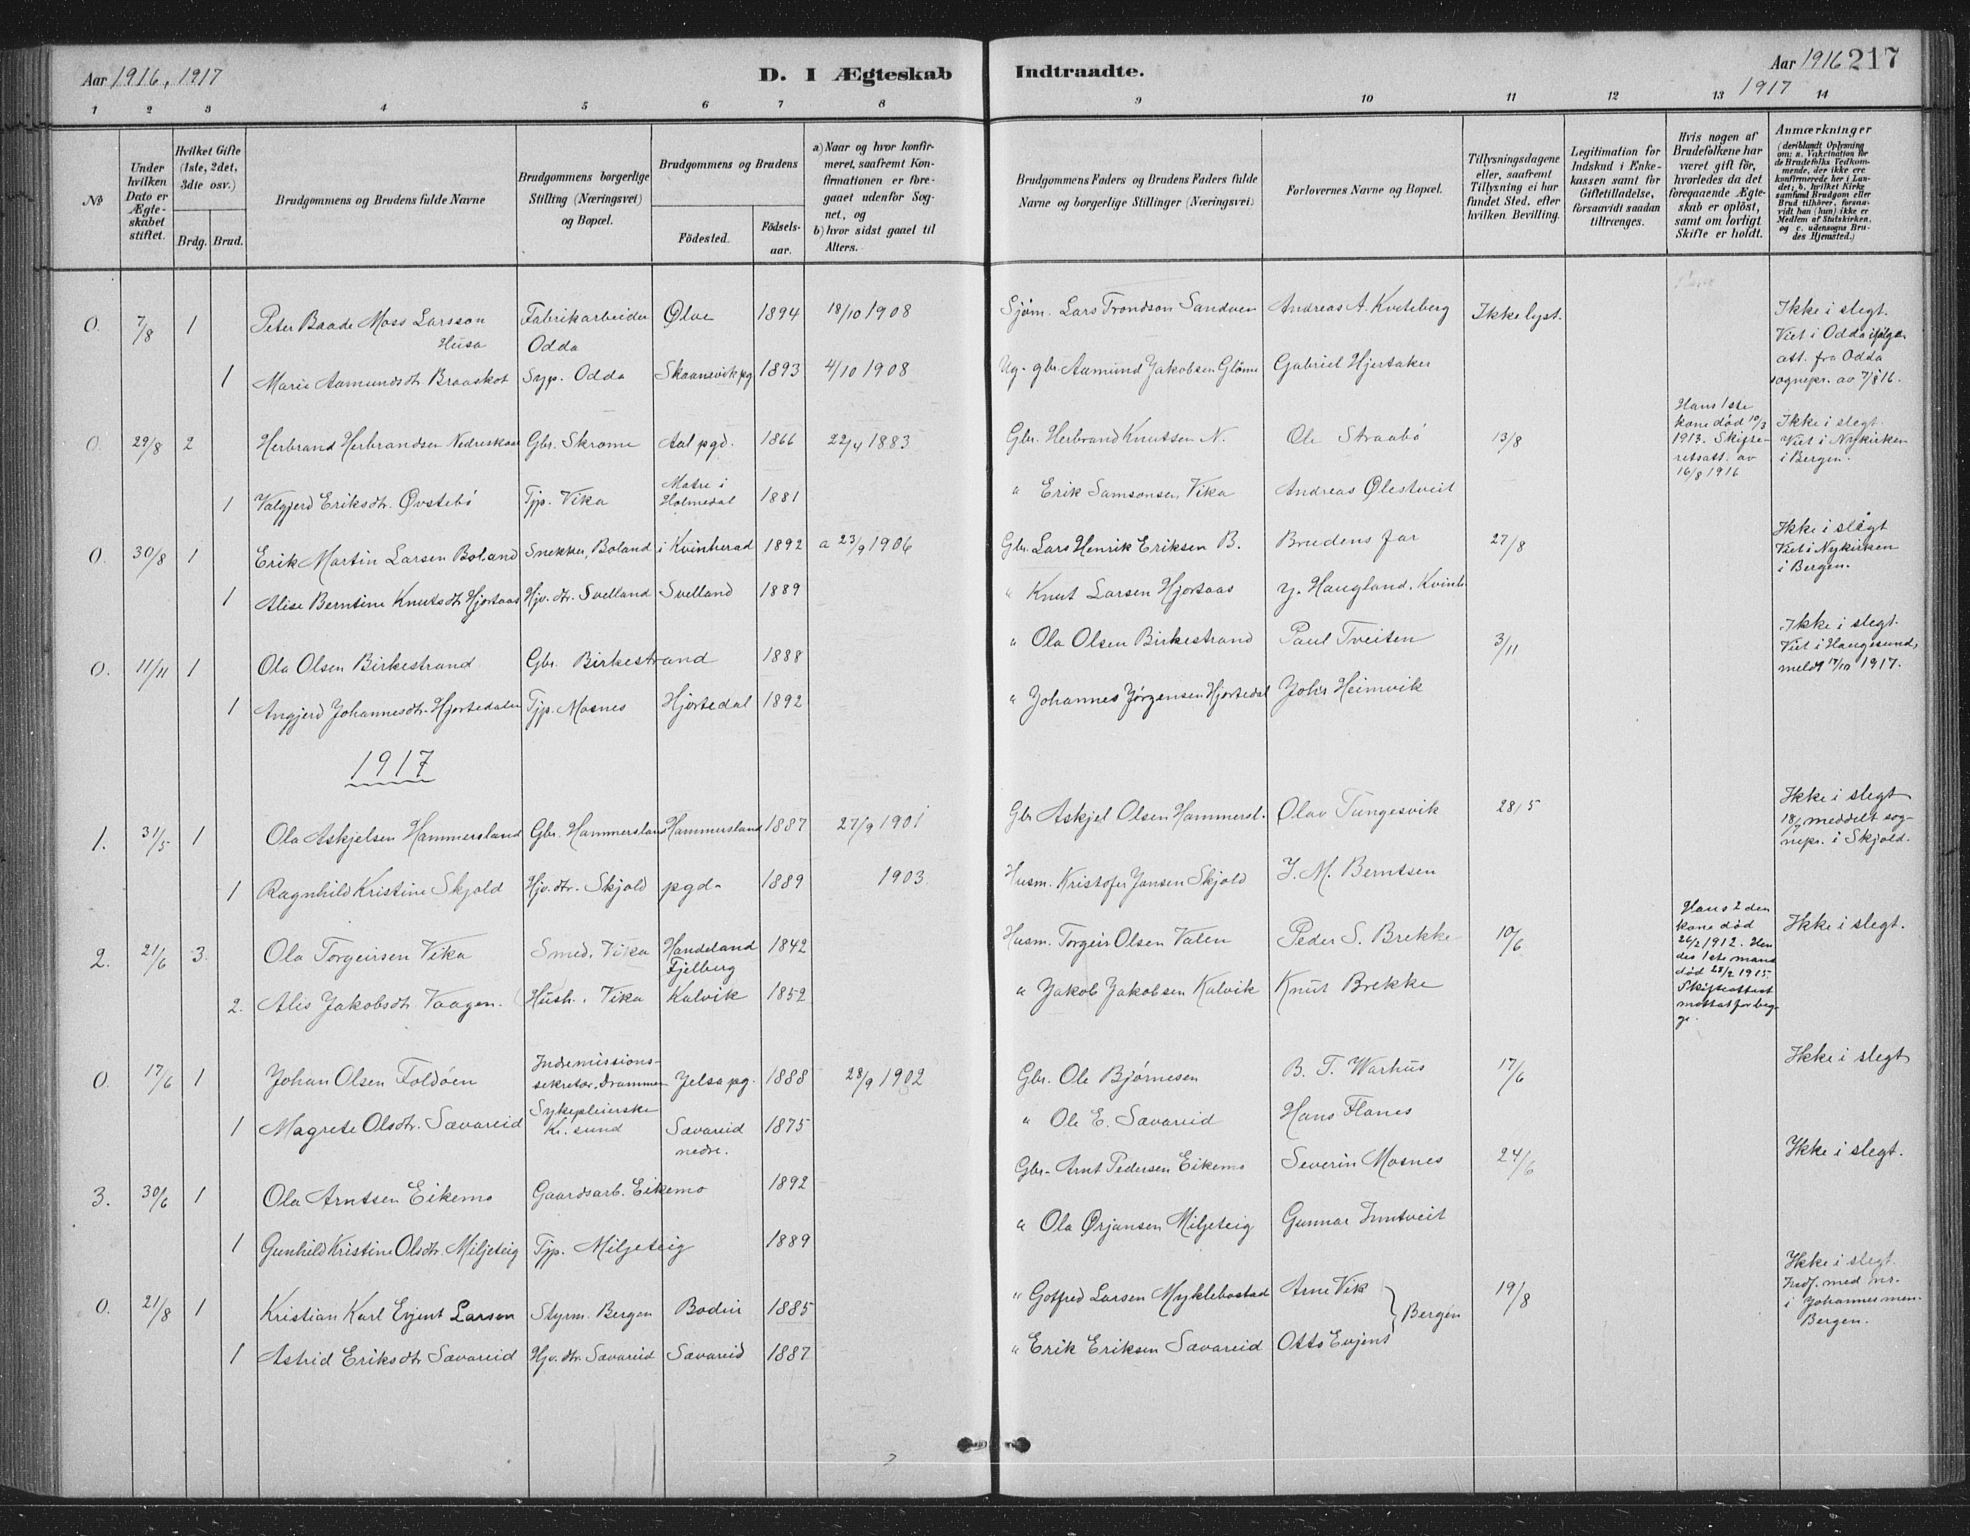 Aar 1916, 1917
D. I Ægteskab Indtraadte.
Aar 1916 217
1917
1 2 3 4 5 6 7 8 9 10 11 12 13 14
No
Under hvilken Dato er Ægteskabet stiftet.
Hvilket Gifte (1ste, 2det, 3die osv.)
Brdg. Brud.
Brudgommens og Brudens fulde Navne
Brudgommens borgerlige Stilling (Næringsvei) og Bopæl.
Brudgommens og Brudens
Födested. Födselsaar.
a) Naar og hvor konfirmeret, saafremt Konfirmationen er foregaaet udenfor Sognet, og
b) hvor sidst gaaet til Alters.
Brudgommens Faders og Brudens Faders fulde Navne og borgerlige Stillinger (Næringsvei)
Forlovernes Navne og Bopæl.
Tillysningsdagene eller, saafremt Tillysning ei har fundet Sted, efter hvilken Bevilling.
Legitimation for Indskud i Enkekassen samt for Giftetilladelse, forsaavidt saadan tiltrænges.
Hvis nogen af Brudefolkene har været gift för, hvorledes da det foregaaende Ægteskab er oplöst, samt om lovligt Skifte er holdt.
Anmærkninger (deriblandt Oplysning om: a. Vakcination for de Brudefolks Vedkommende, der ikke ere konfirmerede her i Landet; b. hvilket Kirkesamfund Brudgom eller Brud tilhörer, forsaavidt han (hun) ikke er Medlem af Statskirken, og c. udensogns Brudes Hjemsted.)
0. 7/8 1 Peter Baade Moss Larsson Husa Fabrikarbeider Odda Ølve 1894 18/10 1908 Sjøm. Lars Trondson Sandven Andreas A. Kviteberg Ikke lyst. Ikke i slegt. Viet i Odda ifølge att. fra Odda sognepr. av 7/8 16.
1 Marie Aamundsdtr. Braaskot Syp. Odda Skaanevik pg 1893 4/10 1908 Ug. gbr. Aamund Jakobsen Gabriel Hjertaker
0. 29/8 2 Herbrand Herbrandsen Gbr. Skromme Aal pgd. 1866 22/4 1883 Gbr. Herbrand Knutsen N. Ole Straabø 13/8 Hans 1ste kone død 10/3 1913. Skifteretsatt. av 16/8 1916 Ikke i slegt. Viet i Nykirken i Bergen.
1 Valgjerd Eriksdtr. Øvstebø Tjp. Vika Matre i Holmedal 1881 " Erik Samsonsen Vika Andreas Ølestveit
0. 30/8 1 Erik Martin Larsen Boland Snekker, Boland i Kvinherad 1892 a 23/9 1906 Gbr. Lars Henrik Eriksen B. Brudens far 27/8 Ikke i slægt Viet i Nykirken i Bergen.
1 Alise Berntine Knutsdtr Hjortaas Hjv. dtr. Svelland Svelland 1889 " Knut Larsen Hjortaas Y. Haugland, Kvinh.
0. 11/11 1 Ola Olsen Birkestrand Gbr. Birkestrand 1888 " Ola Olsen Birkestrand Paul Tveiten 3/11 Ikke i slegt. Viet i Haugesund, meldt 17/10 1917.
1 Angjerd Johannesdtr. Hjortedalen Tjp. Mosnes Hjortedal 1892 " Johannes Jørgensen Hjortedal Johs Heimvik
1917
1. 31/5 1 Ola Askjelsen Hammersland Gbr. Hammersland Hammersland 1887 27/9 1901 Gbr Askjel Olsen Hammersl. Olav Tungesvik 28/5 Ikke i slegt 18/7 meddelt sognepr. i Skjold.
1 Ragnhild Kristine Skjold Hjv. dtr. Skjold pgd. 1889 1903 Husm. Kristofer Jansen Skjold J. M. Berntsen
2. 21/6 3. Ola Torgeirsen Vika Smed, Vika Handeland Fjelberg 1842 Husm. Torgeir Olsen Valen Peder S. Brekke 10/6 Hans 2den kone død 26/2 1912. Hendes 1ste mand død 28/2 1915 Skifteattest mottat for begge. Ikke i slegt.
2. Alis Jakobsdtr Vaagen. Hush. Vika Kalvik 1852 " Jakob Jakobsen Kalvik Knut Brekke
0. 17/6 1 Johan Olsen Foldøen Indremissionssekretær, Drammen Jelsa pg. 1888 28/9 1902 Gbr. Ole Bjørnesen B. T. Warhus 17/6 Ikke i slegt
1 Magrete Olsdtr. Sævareid Sykepleierske Kr. sund Sævareid nedre. 1875 " Ole E. Sævareid Hans Flanes
3. 30/6 1 Ola Arntsen Eikemo Gaardsarb. Eikemo 1892 Gbr. Arnt Pedersen Eikemo Severin Mosnes 24/6 Ikke i slegt.
1 Gunhild Kristine Olsdtr. Miljeteig Tjp. Miljeteig 1889 " Ola Ørjansen Miljeteig Gunnar Tuntveit
0. 21/8 1 Kristian Karl Evjent Larsen Styrm. Bergen Bodin 1885 " Gotfred Larsen Myklebostad Arne Vik 19/8 Ikke i slegt. Indf. med nr. i Johannesmen. Bergen.
1 Astrid Eriksdtr Sævareid Hjv. dtr Sævareid Sævareid 1887 " Erik Eriksen Sævareid Otto Evjent } Bergen